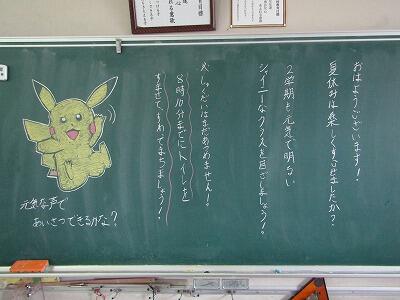 おはようございます！
夏休みは楽しくすごせましたか？
2学期も元気で明るい
シャイニーなクラスを目ざしましょう！
※しゅくだいはまだあつめません！
8時10分までにトイレを
すませて、すわってまちましょう！
元気な声で
あいさつできるかな？